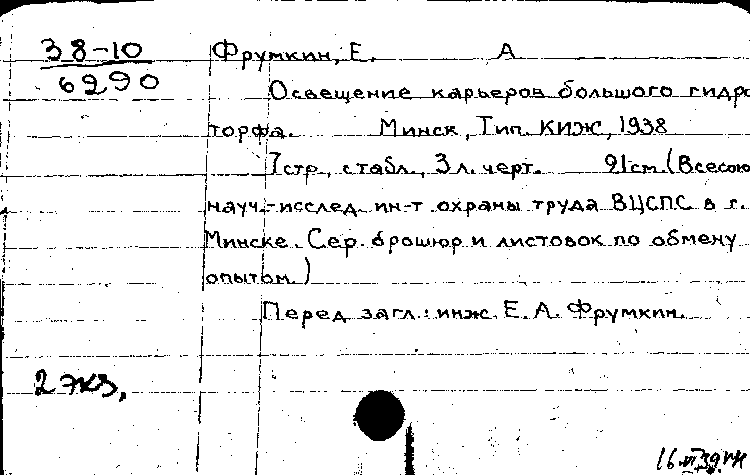 38-10
6290
Фрумкин, Е. А
Освещение карьеров большого гидро
торфа. Минск, Тип. КИЖ, 1938
7 стр., с табл., 3 л. черт. 21 см. (Всесоюз
науч.-исслед. ин-т охраны труда ВЦСПС в г.
Минске. Сер. брошюр и листовок по обмену
опытом)
Перед загл.: инж. Е. А. Фрумкин.
2 экз.
16.VI.39